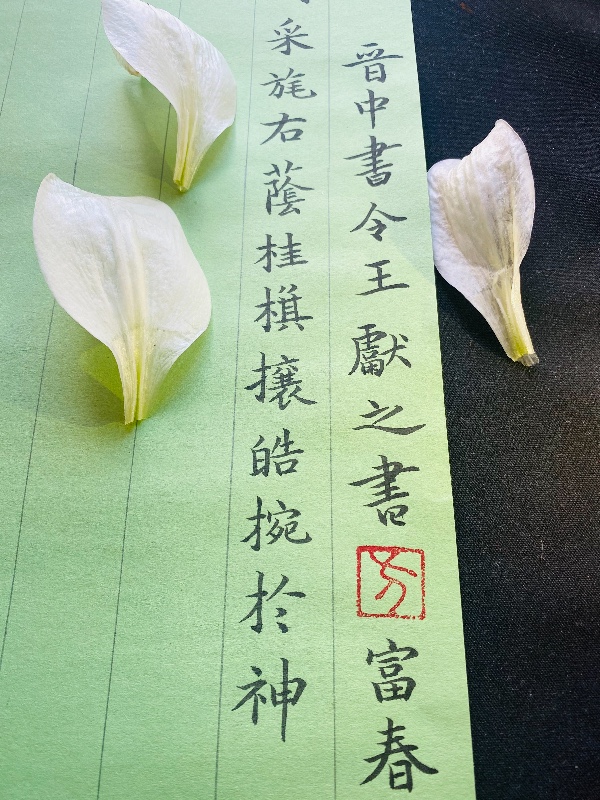 晉中書令王獻之書富春
采旄右蔭桂棋攘皓捥於神